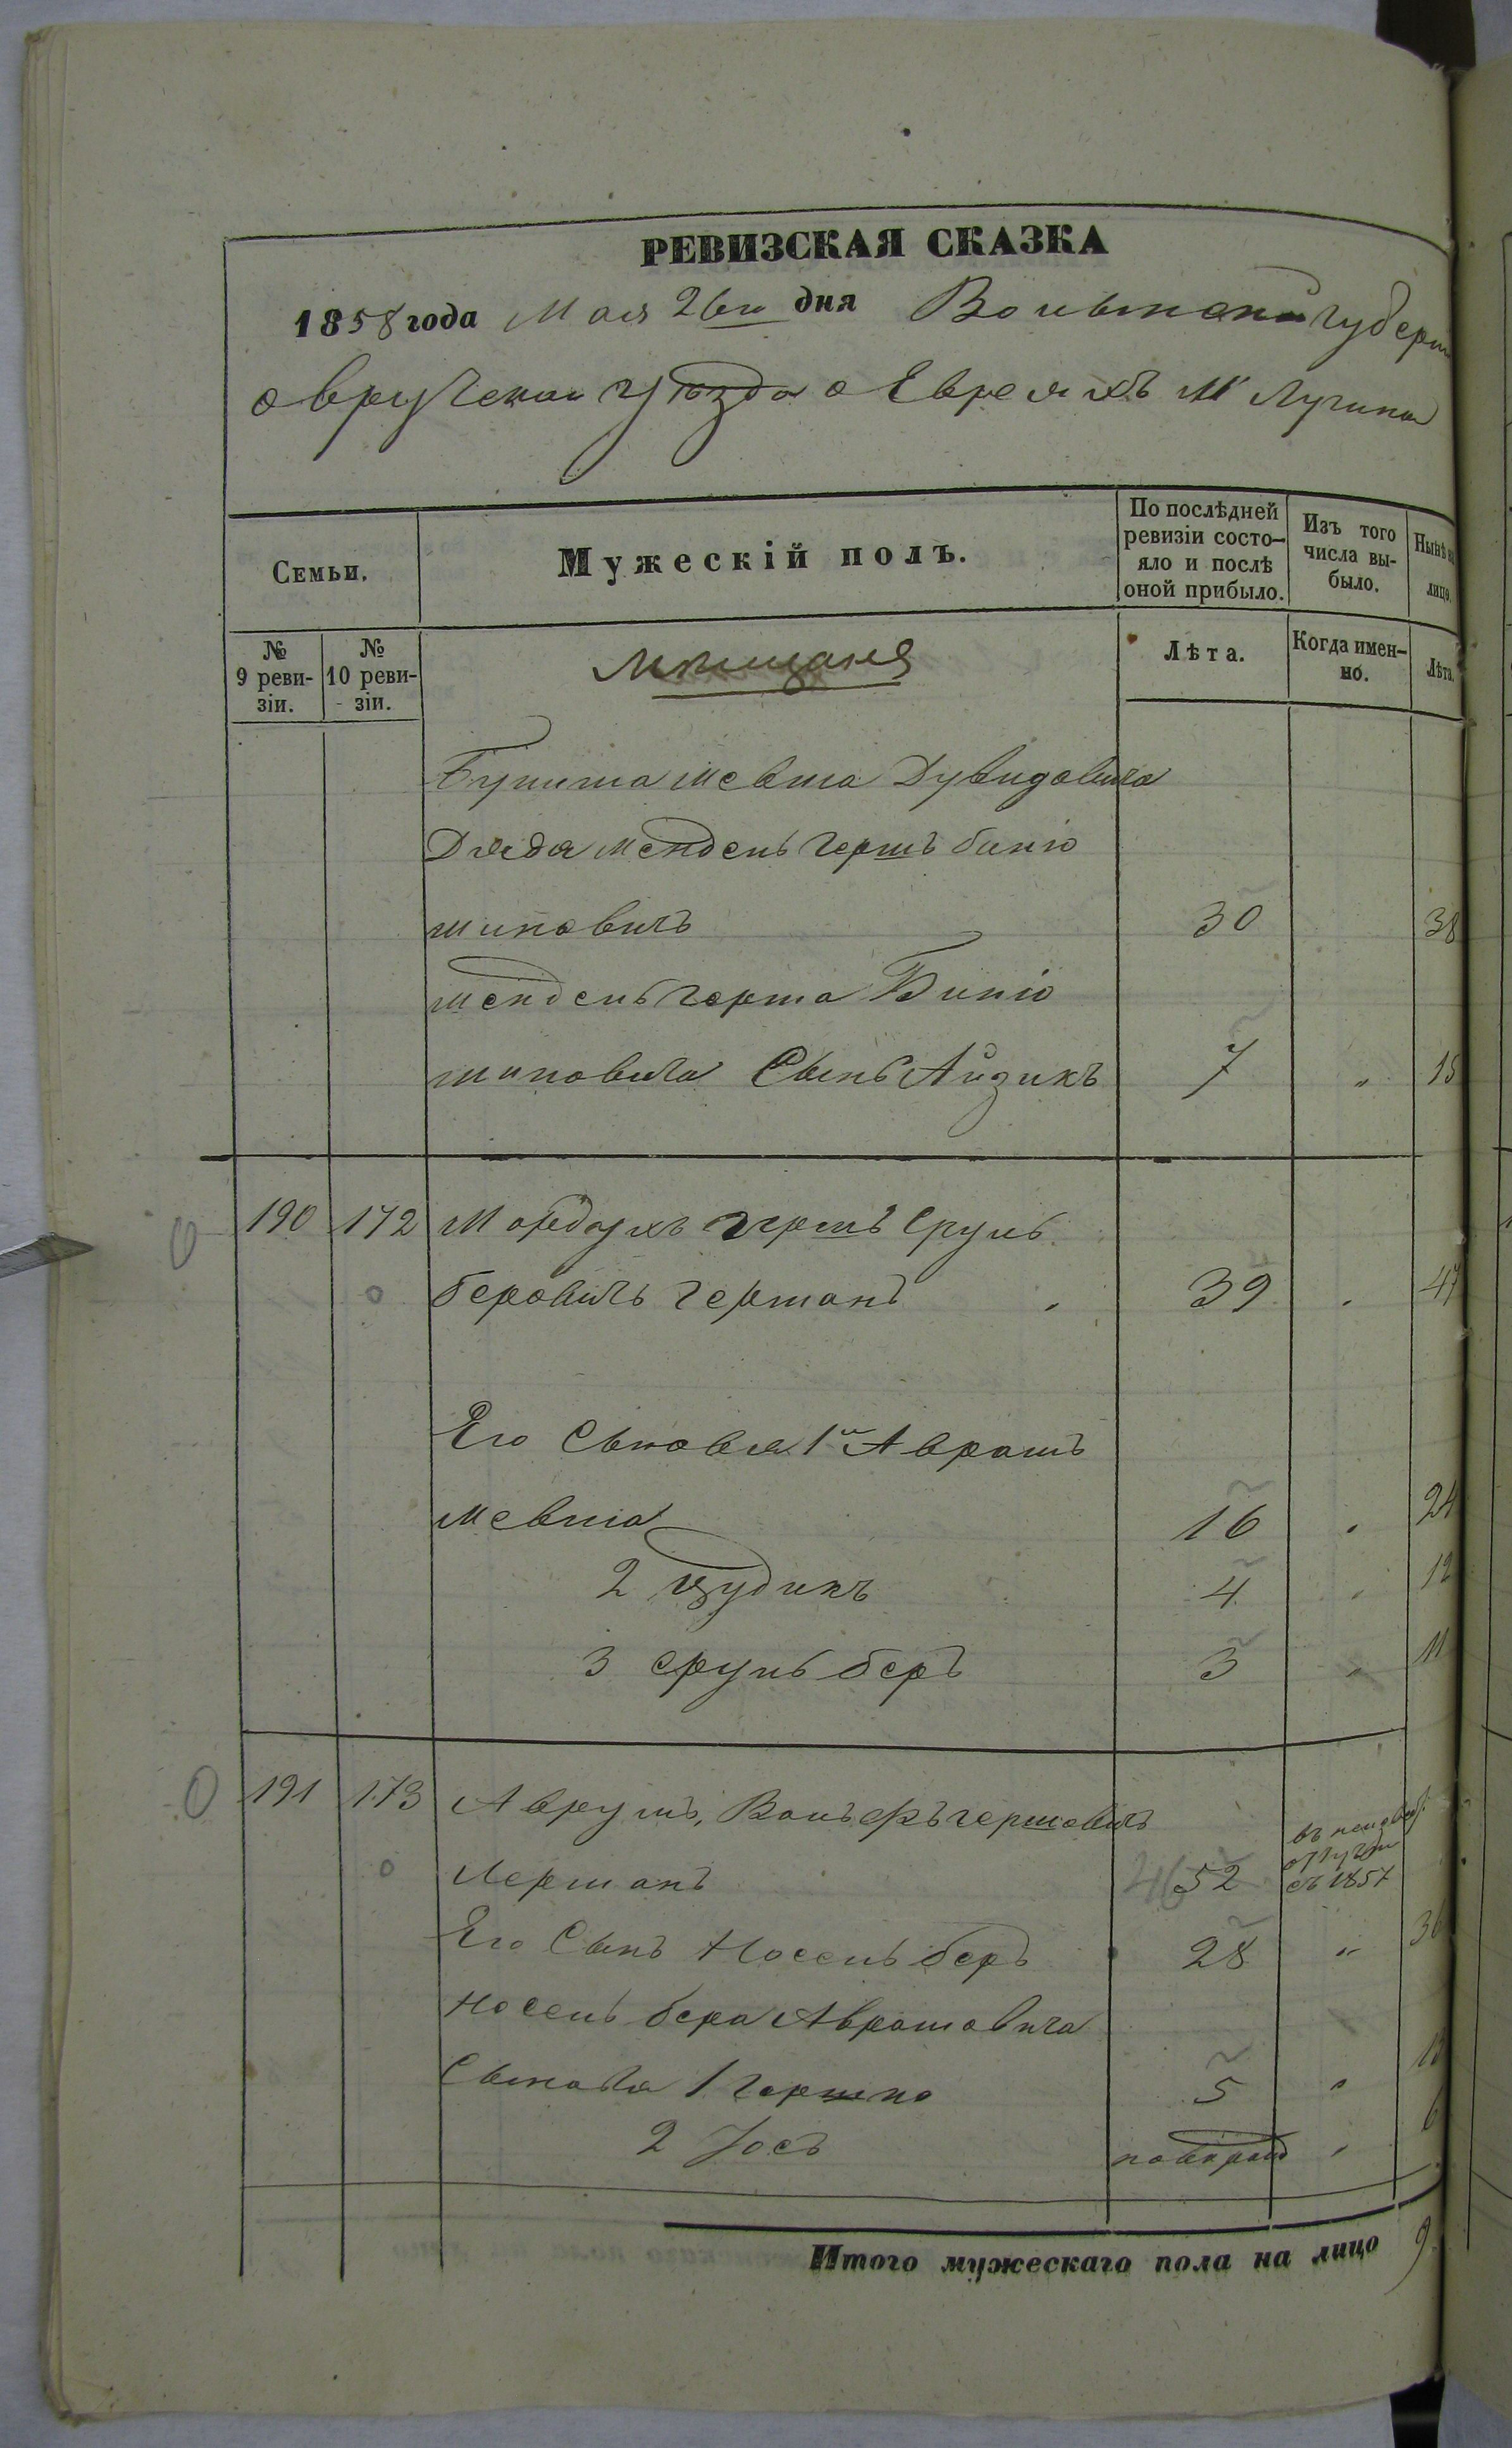 РЕВИЗСКАЯ СКАЗКА
1858 года Мая 26го дня Волынской Губерн
Овручскаго уѣзда о Евреяхъ М Лугинъ
Семьи.
Мужескій полъ.
По послѣдней ревизіи состо-
яло и послѣ оной прибыло.
Изъ того числа вы-
было.
Нынѣ на лицо.
№ 9 реви-
зіи.
№ 10 реви-
зіи.
Мѣщане
Лѣта.
Когда имен-
но.
Лѣта.
Мевша Дувидовича
Дядя Мендель Гершъ Биніо
миновичъ 30 38
Мендель Герша Биніо
миновича Сынъ Айзикъ 7 „ 15
190 172 Мордухъ Гершъ Сруль
беровичъ Германъ 39 47
Его Сыновья 1й Аврамъ
Мевша 16 24
2 4 12
3 Сруль беръ 3 11
191 173 Аврумъ, Вольфъ Гершовичъ
Лерманъ 46 52 отлучки съ 1857
Его Сынъ Носель беръ 28 „ 36
Носель бера Аврамовича
Сыновья 1 Гершко 5 13
2 Іосъ новорожд 6
Итого мужескаго пола на лицо 9